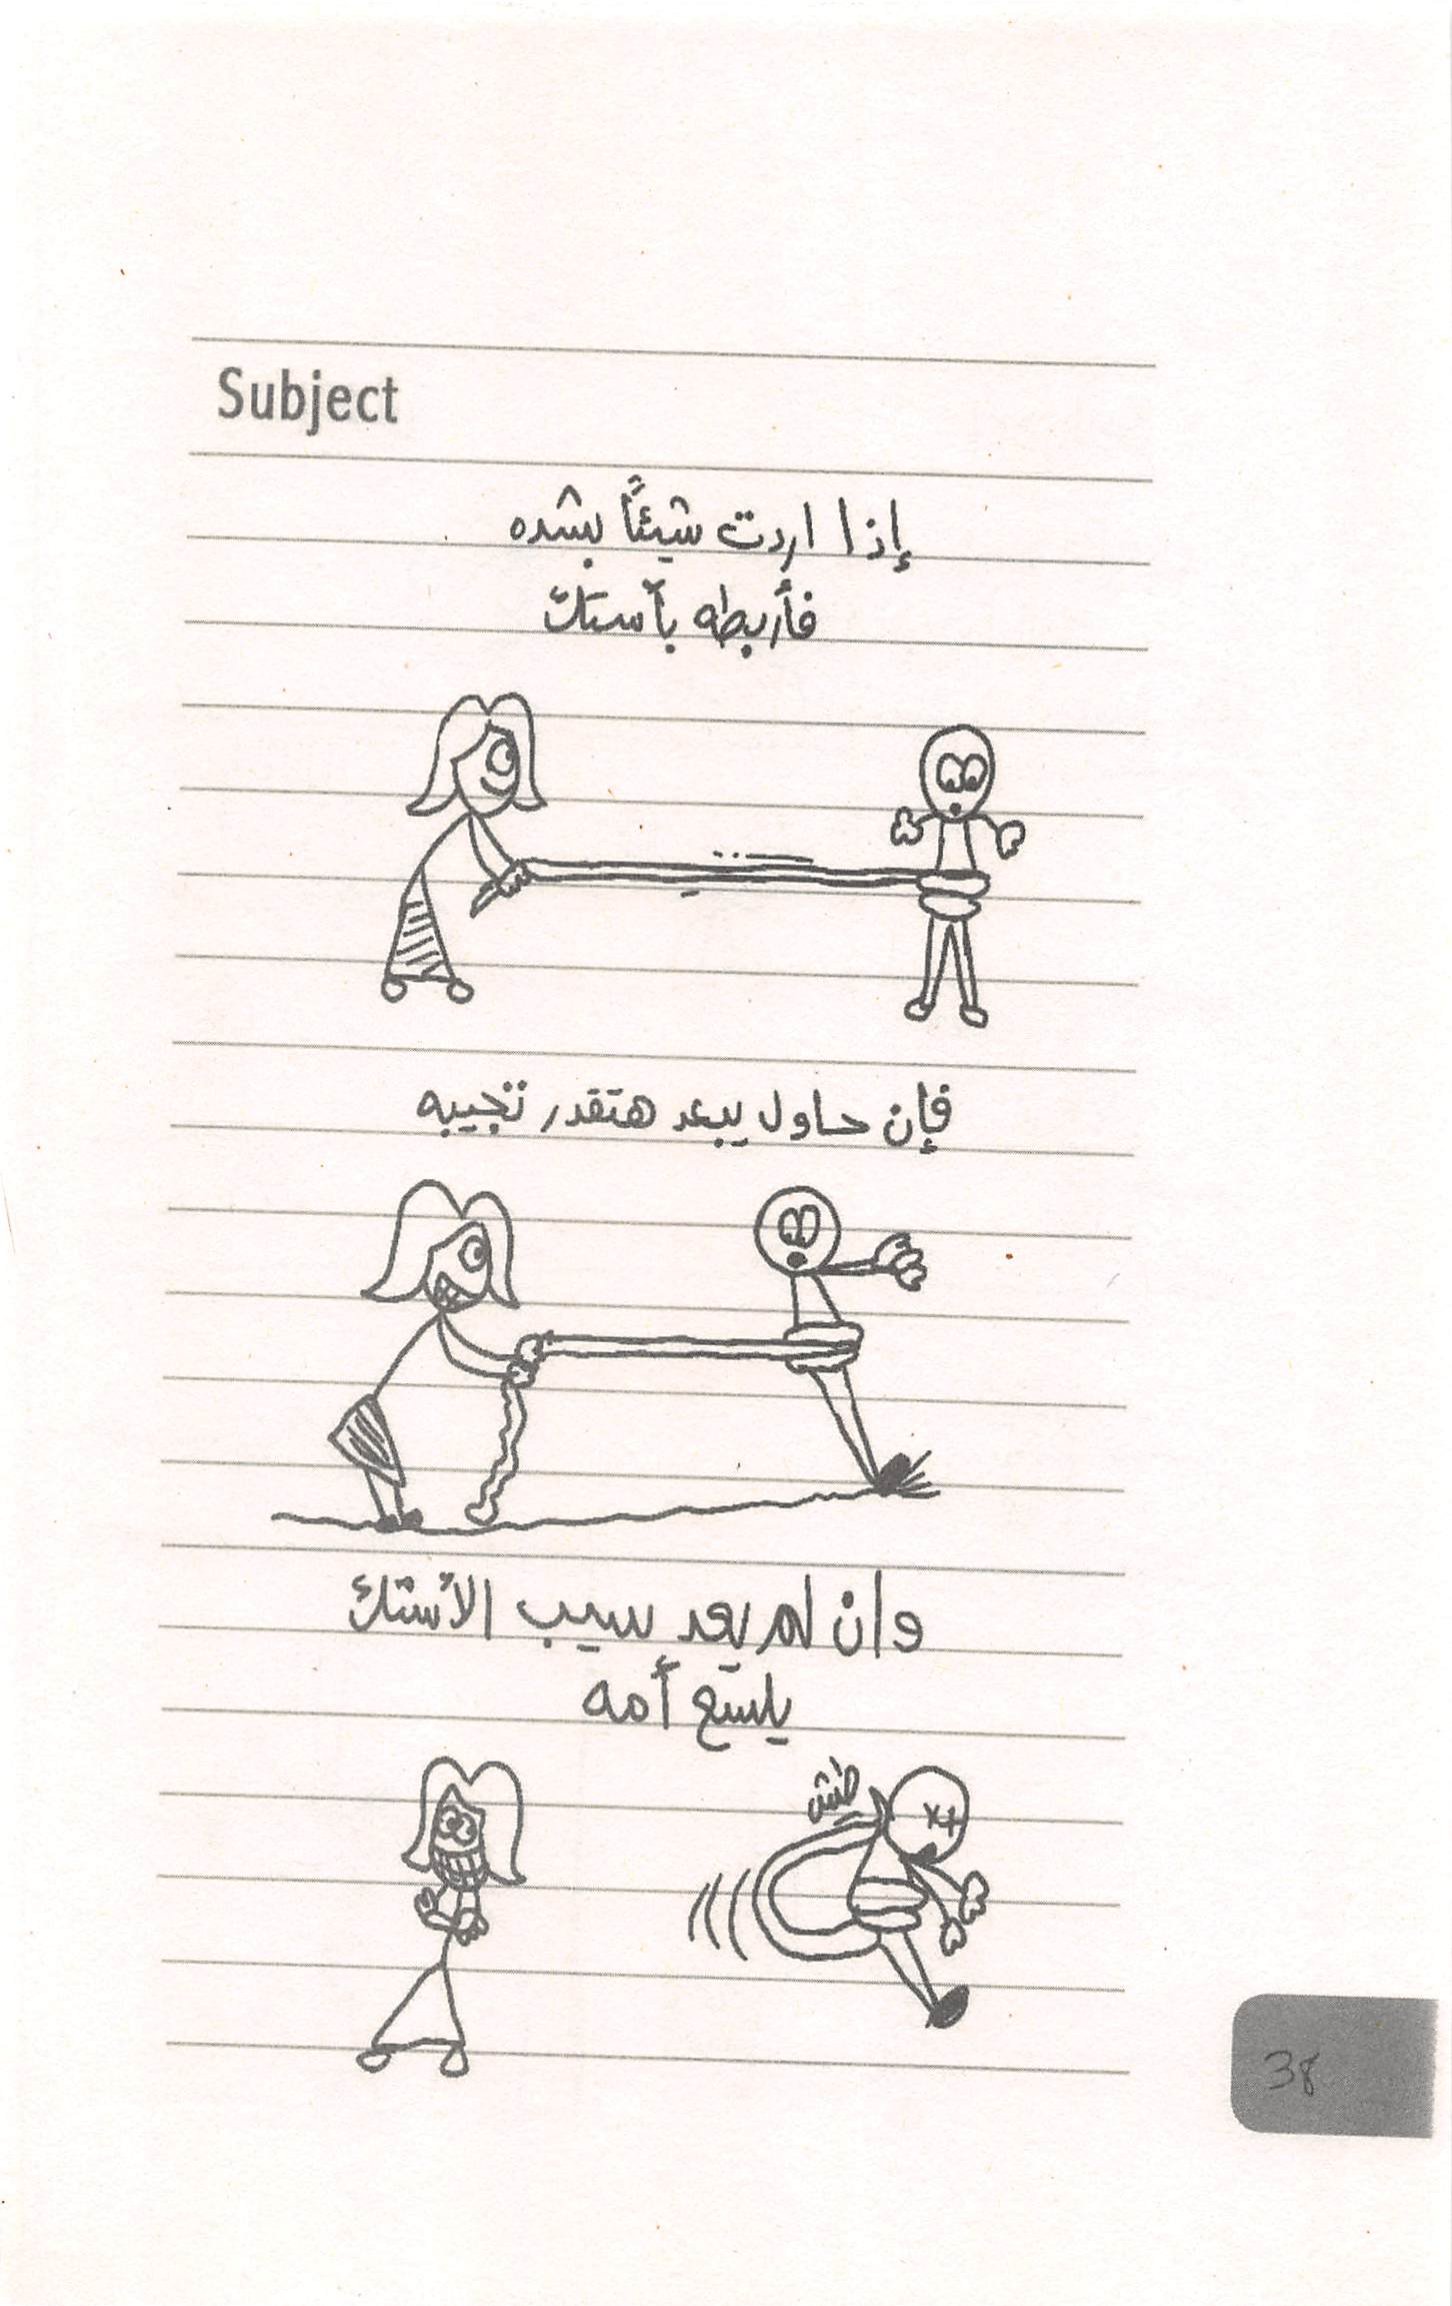 Subject
إذا اردت شيئاً بشده
فأربطه بأستك
فإن حاول يبعد هتقدر تجيبه
وان لم يعد سيب الأستك
يلسع أمه
طش
38